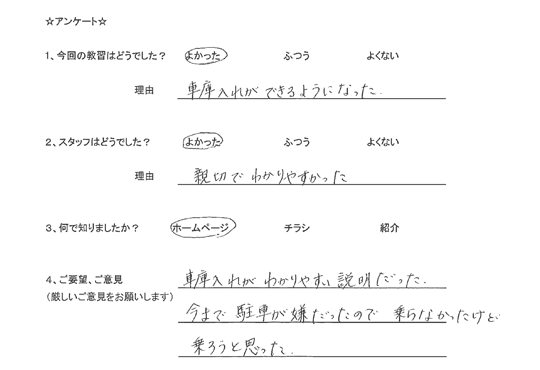 ☆アンケート☆
1、今回の教習はどうでした？ よかった ふつう よくない
理由 車庫入れが できるようになった.
2、スタッフはどうでした？ よかった ふつう よくない
理由 親切で わかりやすかった
3、何で知りましたか？ ホームページ チラシ 紹介
4、ご要望、ご意見 車庫入れが わかりやすい 説明だった.
（厳しいご意見をお願いします）
今まで 駐車が嫌だったので 乗らなかったけど
乗ろうと思った.